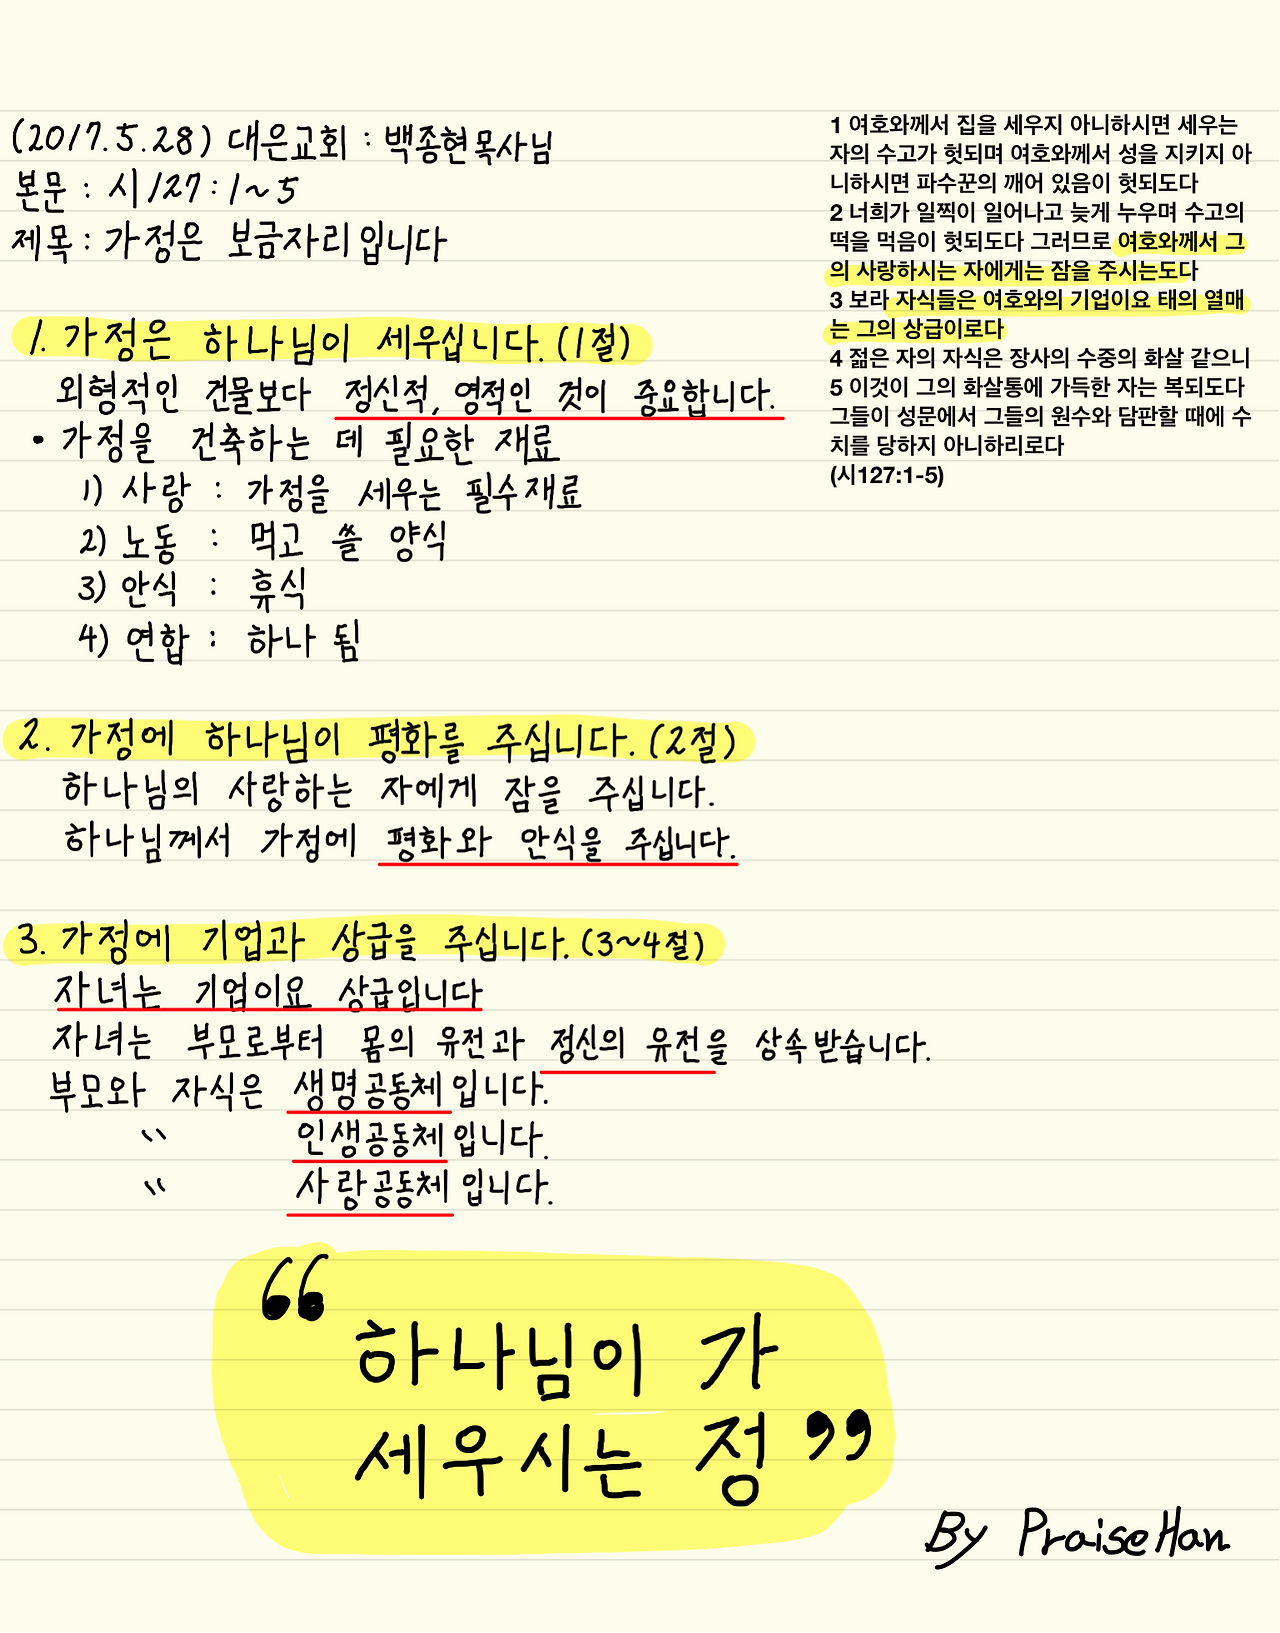 (2017.5.28) 대은교회 : 백종현목사님
본문 : 시127:1~5
제목 : 가정은 보금자리입니다
1 여호와께서 집을 세우지 아니하시면 세우는
자의 수고가 헛되며 여호와께서 성을 지키지 아
니하시면 파수꾼의 깨어 있음이 헛되도다
2 너희가 일찍이 일어나고 늦게 누우며 수고의
떡을 먹음이 헛되도다 그러므로 여호와께서 그
의 사랑하시는 자에게는 잠을 주시는도다
3 보라 자식들은 여호와의 기업이요 태의 열매
는 그의 상급이로다
4 젊은 자의 자식은 장사의 수중의 화살 같으니
5 이것이 그의 화살통에 가득한 자는 복되도다
그들이 성문에서 그들의 원수와 담판할 때에 수
치를 당하지 아니하리로다
(시127:1-5)
1. 가정은 하나님이 세우십니다. (1절)
외형적인 건물보다 정신적, 영적인 것이 중요합니다.
• 가정을 건축하는 데 필요한 재료
1) 사랑 : 가정을 세우는 필수재료
2) 노동 : 먹고 쓸 양식
3) 안식 : 휴식
4) 연합 : 하나 됨
2. 가정에 하나님이 평화를 주십니다. (2절)
하나님의 사랑하는 자에게 잠을 주십니다.
하나님께서 가정에 평화와 안식을 주십니다.
3. 가정에 기업과 상급을 주십니다. (3~4절)
자녀는 기업이요 상급입니다
자녀는 부모로부터 몸의 유전과 정신의 유전을 상속받습니다.
부모와 자식은 생명공동체입니다.
〃 인생공동체입니다.
〃 사랑공동체입니다.
“하나님이 가
세우시는 정”
By PraiseHan